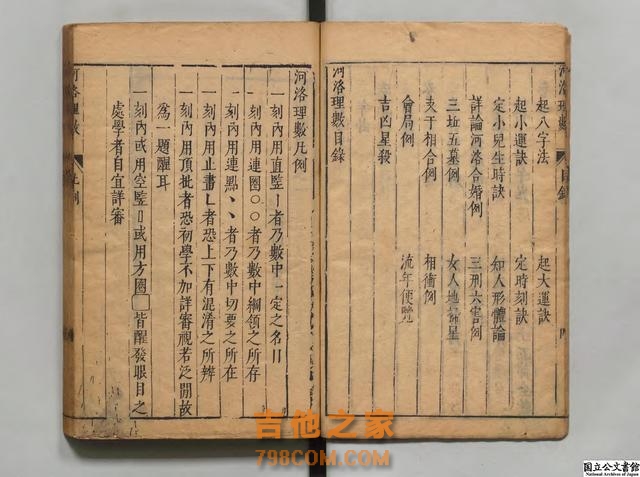 河洛理數 目錄
起八字法 起大運訣
起小運訣 定時刻訣
定小兒生時訣 知人形體論
詳論河洛合婚例 三刑六害例
三坵五墓例 女人地掃星
夫干相合例 相衝例
會局例 流年便覽
吉凶星殺
河洛理數目錄
河洛理數凡例
一刻內用直監丨者乃數中一定之名目
一刻內用連圈〇〇者乃數中綱領之所存
一刻內用連點丶丶者乃數中切要之所在
一刻內用止畫乚者恐上下有混淆之所辨
一刻內用頂批者恐初學不加詳審視若泛閒故
為一題醒耳
一刻內或用空監〢或用方圈□皆醒發眼目之
處學者自宜詳審
河洛理數 凡例
吉他之家
798COM.COM
国立公文書館
National Archives of Japan